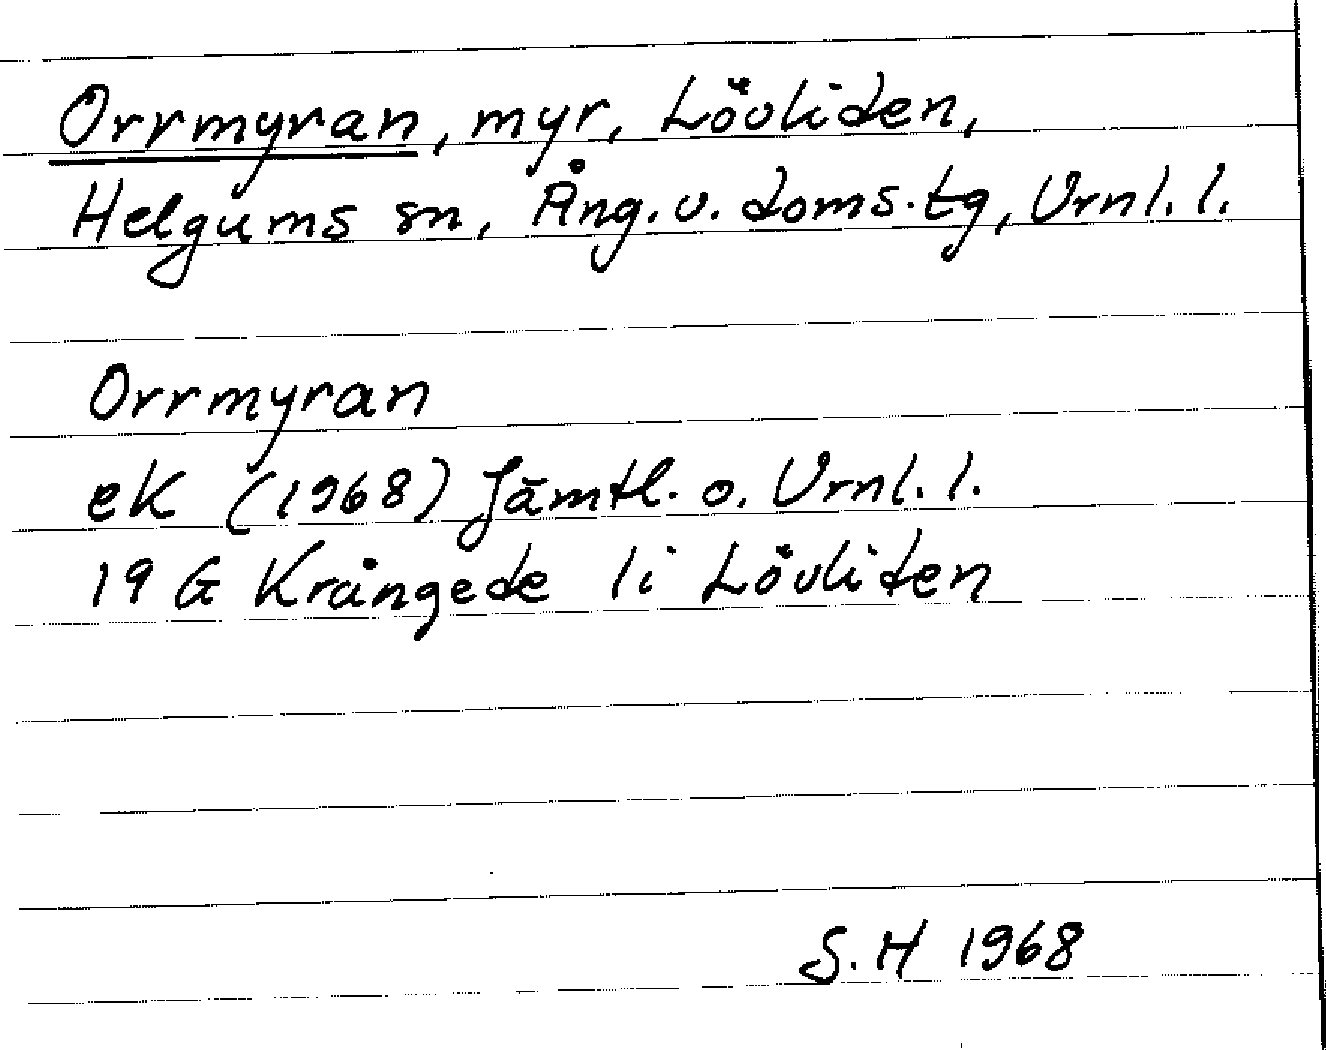 Orrmyran, myr, Lövliden,
Helgums sn, Ång. v. doms.tg, Vrnl. l.
Orrmyran
ek (1968) Jämtl. o. Vrnl. l.
19 G Krångede 1i Lövliden
S.H 1968